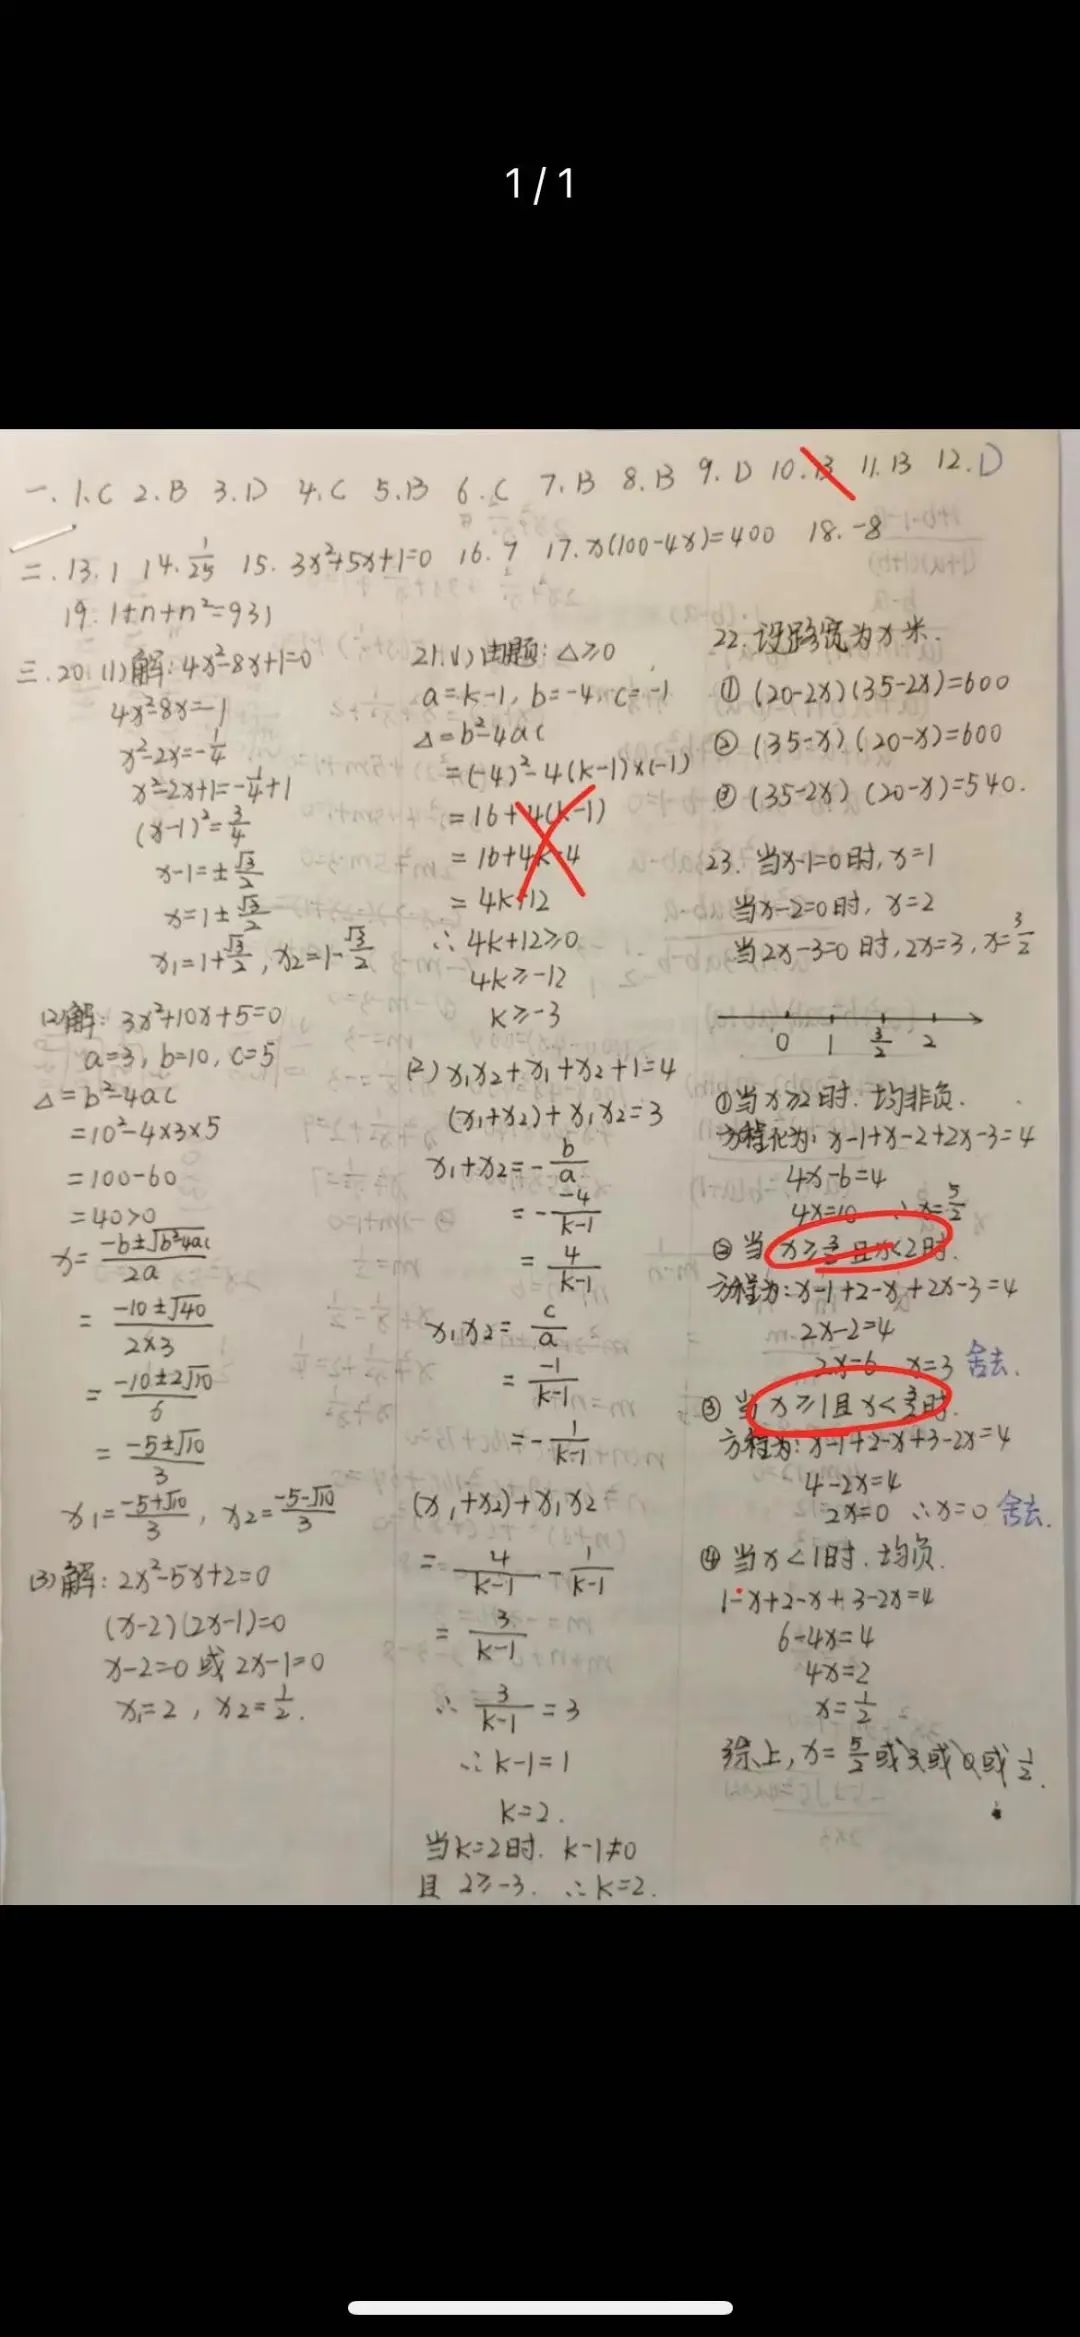 1/1
一. 1.C 2.B 3.D 4.C 5.B 6.C 7.B 8.B 9.D 10.B 11.B 12.D
二. 13. 1 14. 1/25 15. 3x²+5x+1=0 16. 7 17. x(100-4x)=400 18. -8
19. 1+n+n²=931
三. 20. (1) 解: 4x²-8x+1=0
4x²-8x=-1
x²-2x=-1/4
x²-2x+1=-1/4+1
(x-1)²=3/4
x-1=±√3/2
x=1±√3/2
x₁=1+√3/2, x₂=1-√3/2
(2)解: 3x²+10x+5=0
a=3, b=10, c=5
△=b²-4ac
=10²-4×3×5
=100-60
=40>0
x=(-b±√b²-4ac)/2a
=(-10±√40)/2×3
=(-10±2√10)/6
=(-5±√10)/3
x₁=(-5+√10)/3, x₂=(-5-√10)/3
(3)解: 2x²-5x+2=0
(x-2)(2x-1)=0
x-2=0 或 2x-1=0
x₁=2, x₂=1/2.
21. (1) 由题: △≥0
a=k-1, b=-4, c=-1
△=b²-4ac
=(-4)²-4(k-1)×(-1)
=16+4(k-1)
=16+4k-4
=4k+12
∴ 4k+12≥0
4k≥-12
k≥-3
(2) x₁x₂+x₁+x₂+1=4
(x₁+x₂)+x₁x₂=3
x₁+x₂=-b/a
=-(-4)/(k-1)
=4/(k-1)
x₁x₂=c/a
=-1/(k-1)
=-1/(k-1)
(x₁+x₂)+x₁x₂
=4/(k-1)-1/(k-1)
=3/(k-1)
∴ 3/(k-1)=3
∴ k-1=1
k=2.
当k=2时. k-1≠0
且 2≥-3. ∴k=2.
22. 设路宽为x米.
① (20-2x)(35-2x)=600
② (35-x)(20-x)=600
③ (35-2x)(20-x)=540.
23. 当x-1=0时, x=1
当x-2=0时, x=2
当2x-3=0时, 2x=3, x=3/2
0 1 3/2 2
①当x≥2时. 均非负.
方程化为: x-1+x-2+2x-3=4
4x-6=4
4x=10 ∴x=5/2
② 当 x≥3/2 且x<2时.
方程为: x-1+2-x+2x-3=4
2x-2=4
2x=6 x=3 舍去.
③ 当 x≥1且x<3/2时.
方程为: x-1+2-x+3-2x=4
4-2x=4
2x=0 ∴x=0 舍去.
④ 当x<1时. 均负.
1-x+2-x+3-2x=4
6-4x=4
4x=2
x=1/2
综上, x=5/2或3或0或1/2.